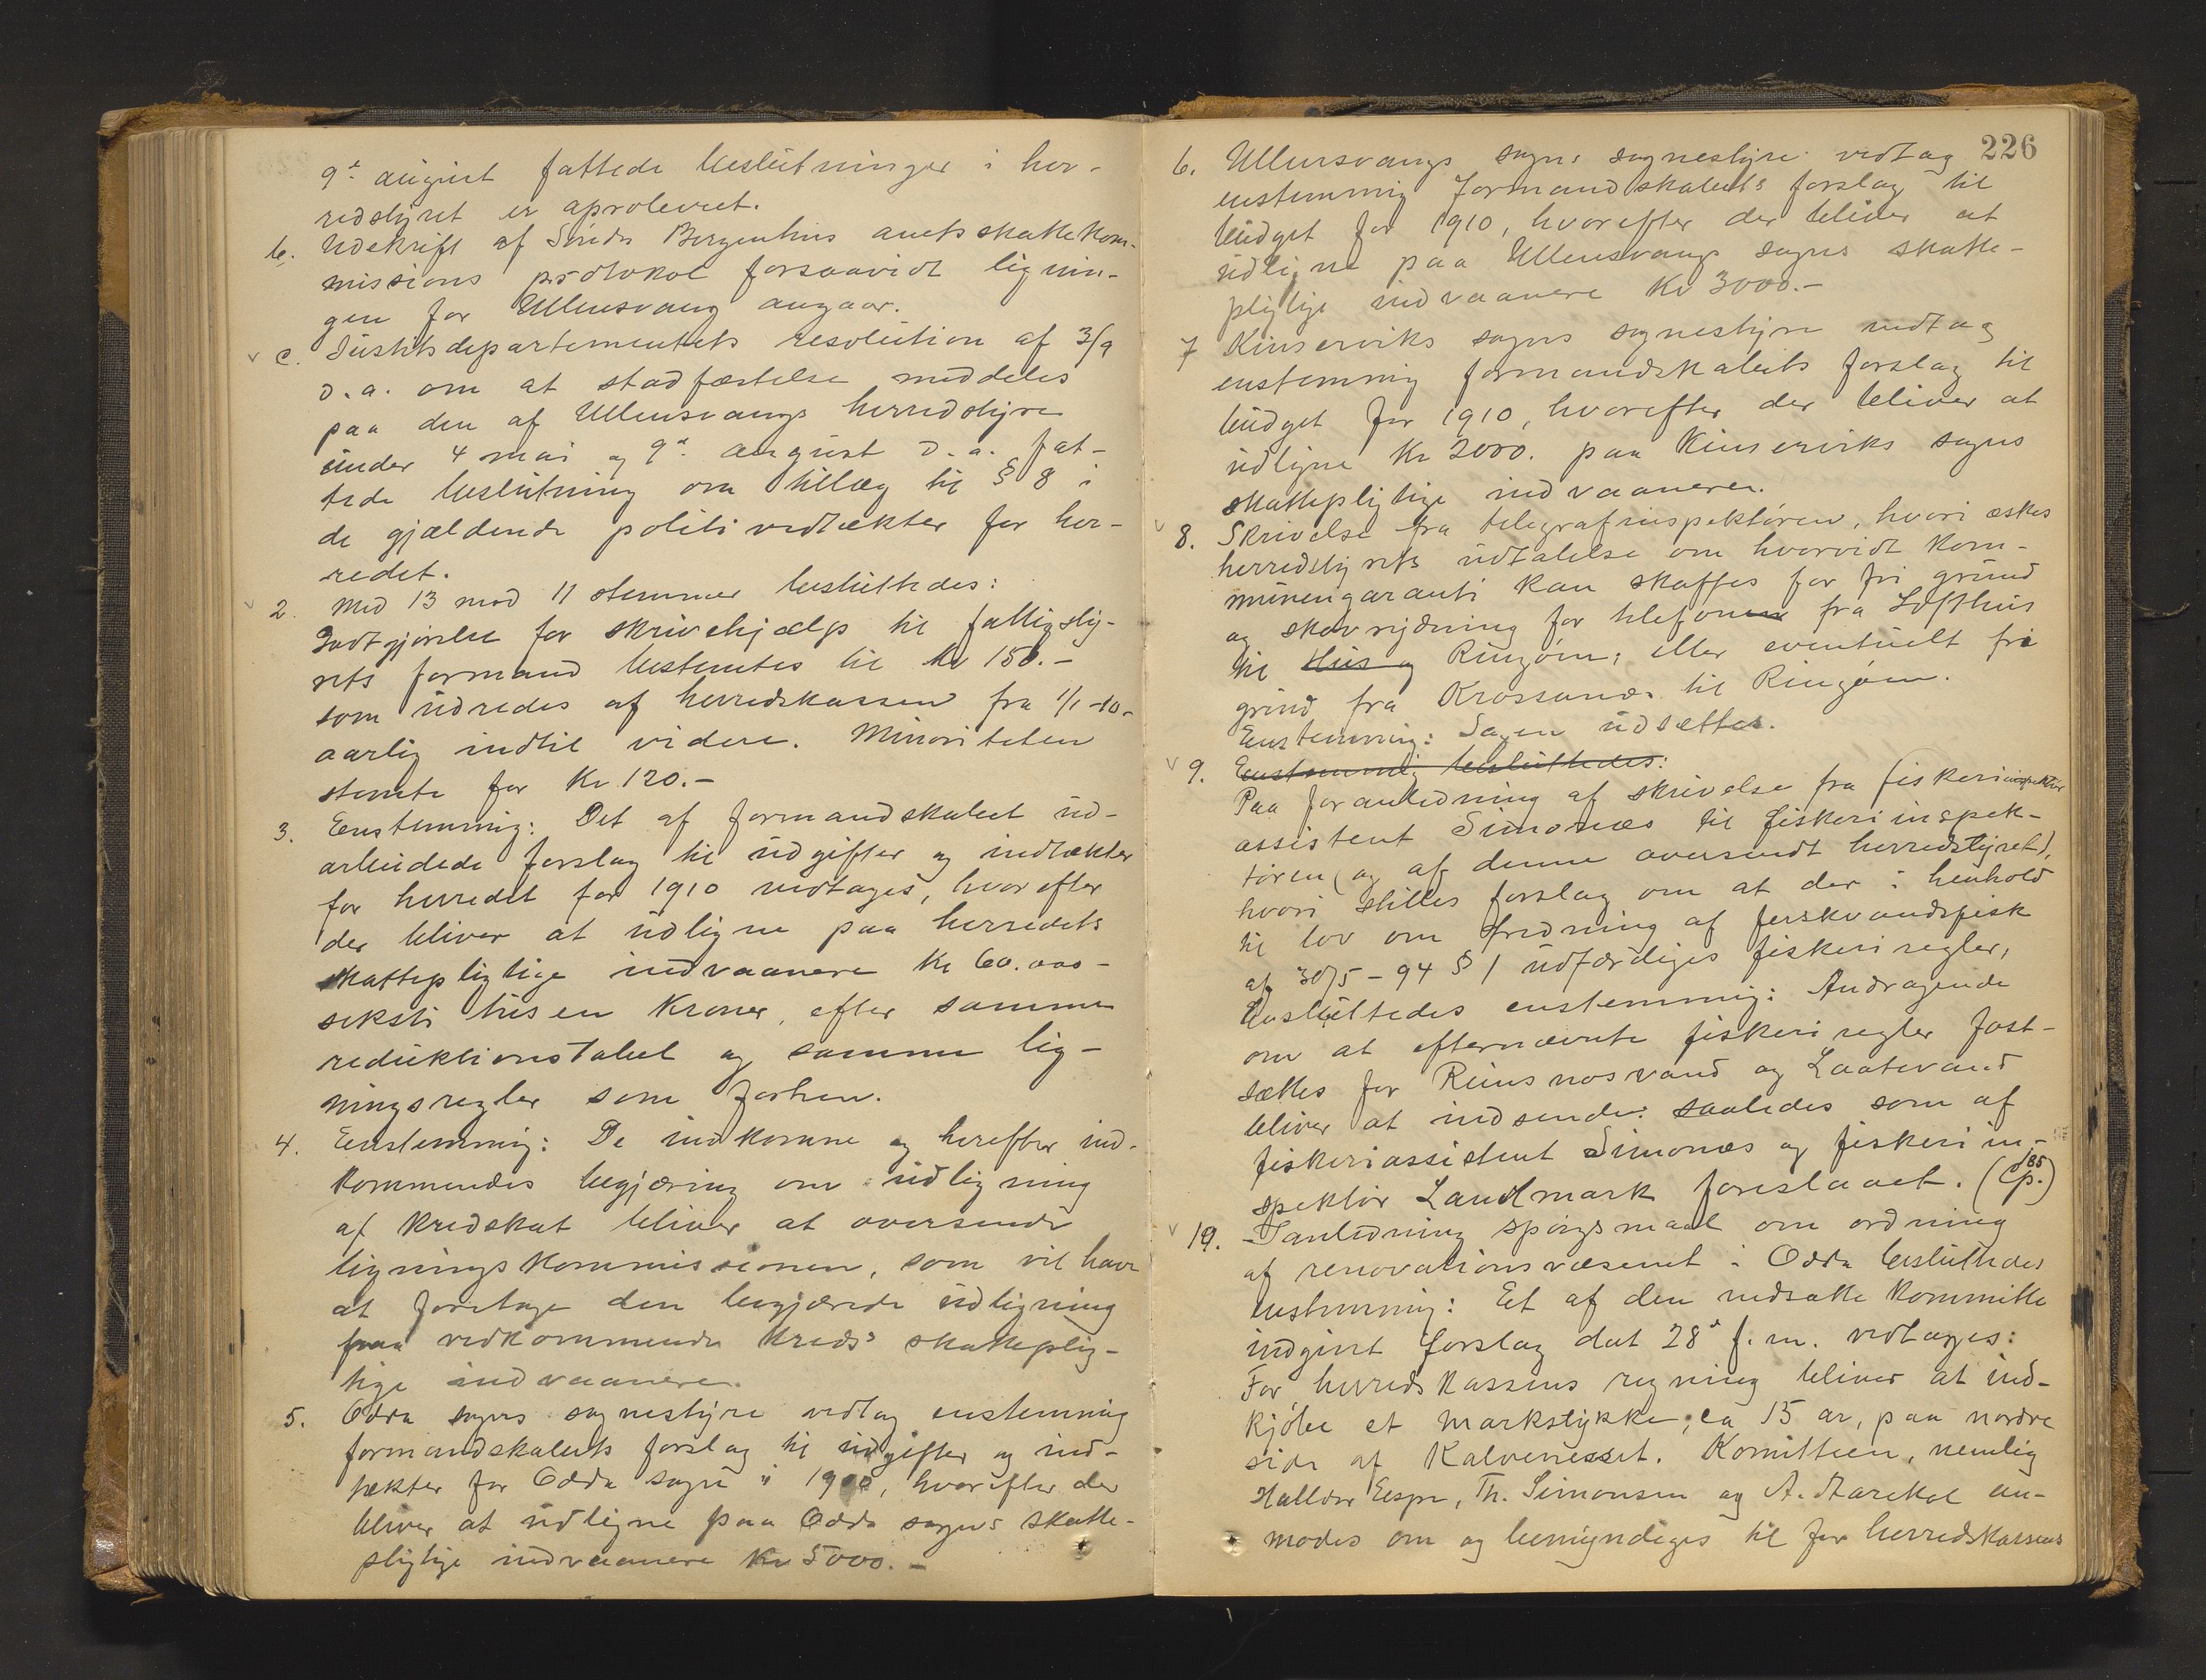 9de august fattede beslutninger i her-
redstyret er aproberet.
b. Udskrift af Søndre Bergenhus amts skattekom-
missions protokol forsaavidt lignin-
gen for Ullensvang angaar.
c. Justitsdepartementets resolution af 3/9
d.a. om at stadfæstelse meddeles
paa den af Ullensvangs herredstyre
under 4 mai og 9de august d.a. fat-
tede beslutning om tillæg til § 8 i
de gjældende politivedtækter for her-
redet.
2. Med 13 mod 11 stemmer besluttedes:
Godtgjørelse for skrivehjælp til fattigsty-
rets formand bestemtes til kr 150.-
som udredes af herredskassen fra 1/1-10-
aarlig indtil videre. Minoriteten
stemte for Kr 120.-
3. Enstemmig: Det af formandskabet ud-
arbeidede forslag til udgifter og indtækter
for herredet for 1910 vedtages, hvorefter
der bliver at udligne paa herredets
skattepligtige indvaanere kr 60.000-
seksti tusen Kroner, efter samme
reduktionstabel og samme lig-
ningsregler som forhen.
4. Enstemmig: De indkomne og herefter ind-
kommendes begjæring om udligning
af kredskat bliver at oversende
ligningskommissionen, som vil have
at foretage den begjærede udligning
paa vedkommende kreds's skatteplig-
tige indvaanere.
5. Odda sogns sognestyre vedtog enstemmig
formandskabets forslag til udgifter og ind-
tækter for Odda sogn i 1910, hvorefter der
bliver at udligne paa Odda sogns skatte-
pligtige indvaanere Kr 5000.-
226
6. Ullensvangs sogns sognestyre vedtog
enstemmig formandskabets forslag til
budget for 1910, hvorefter der bliver at
udligne paa Ullensvangs sogns skatte-
pligtige indvaanere Kr 3000.-
7 Kinserviks sogns sognestyre vedtog
enstemmig formandskabets forslag til
budget for 1910, hvorefter der bliver at
udligne Kr 2000. paa Kinserviks sogns
skattepligtige indvaanere.
8. Skrivelse fra telegrafinspektøren, hvori æskes
herredstyrets udtalelse om hvorvidt kom-
munengaranti kan skaffes for fri grund
og skovrydning for telefonen fra Lofthus
til Hus og Ringøen; eller eventuelt fri
grund fra Krossanæs til Ringøen.
Enstemmig: Sagen udsættes.
9. Enstemmig besluttedes:
Paa foranledning af skrivelse fra fiskeriinspektør
assistent Simonæs til fiskeriinspek-
tøren (og af denne oversendt herredstyret),
hvori stilles forslag om at der i henhold
til lov om fredning af ferskvandsfisk
af 30/5-94 § 1 udfærdiges fiskeriregler,
besluttedes enstemmig: Andragende
om at efternævnte fiskeriregler fast-
sættes for Reinsnosvand og Laatevand
bliver at indsende: saaledes som af
fiskeriassistent Simonæs og fiskeriin-
spektør Landmark foreslaaet. (Cp. 185)
10. I anledning spørgsmaal om ordning
af renovationsvæsenet i Odda besluttedes
enstemmig: Et af den nedsatte kommitte
indgivet forslag dat 28de f.m. vedtages:
For herredskassens regning bliver at ind-
kjøbe et markstykke, ca 15 ar, paa nordre
side af Kalvenesset. Komitteen, nemlig
Halldor Espe, Th. Simonsen og A. Aarekol an-
modes om og bemyndiges til for herredskassens